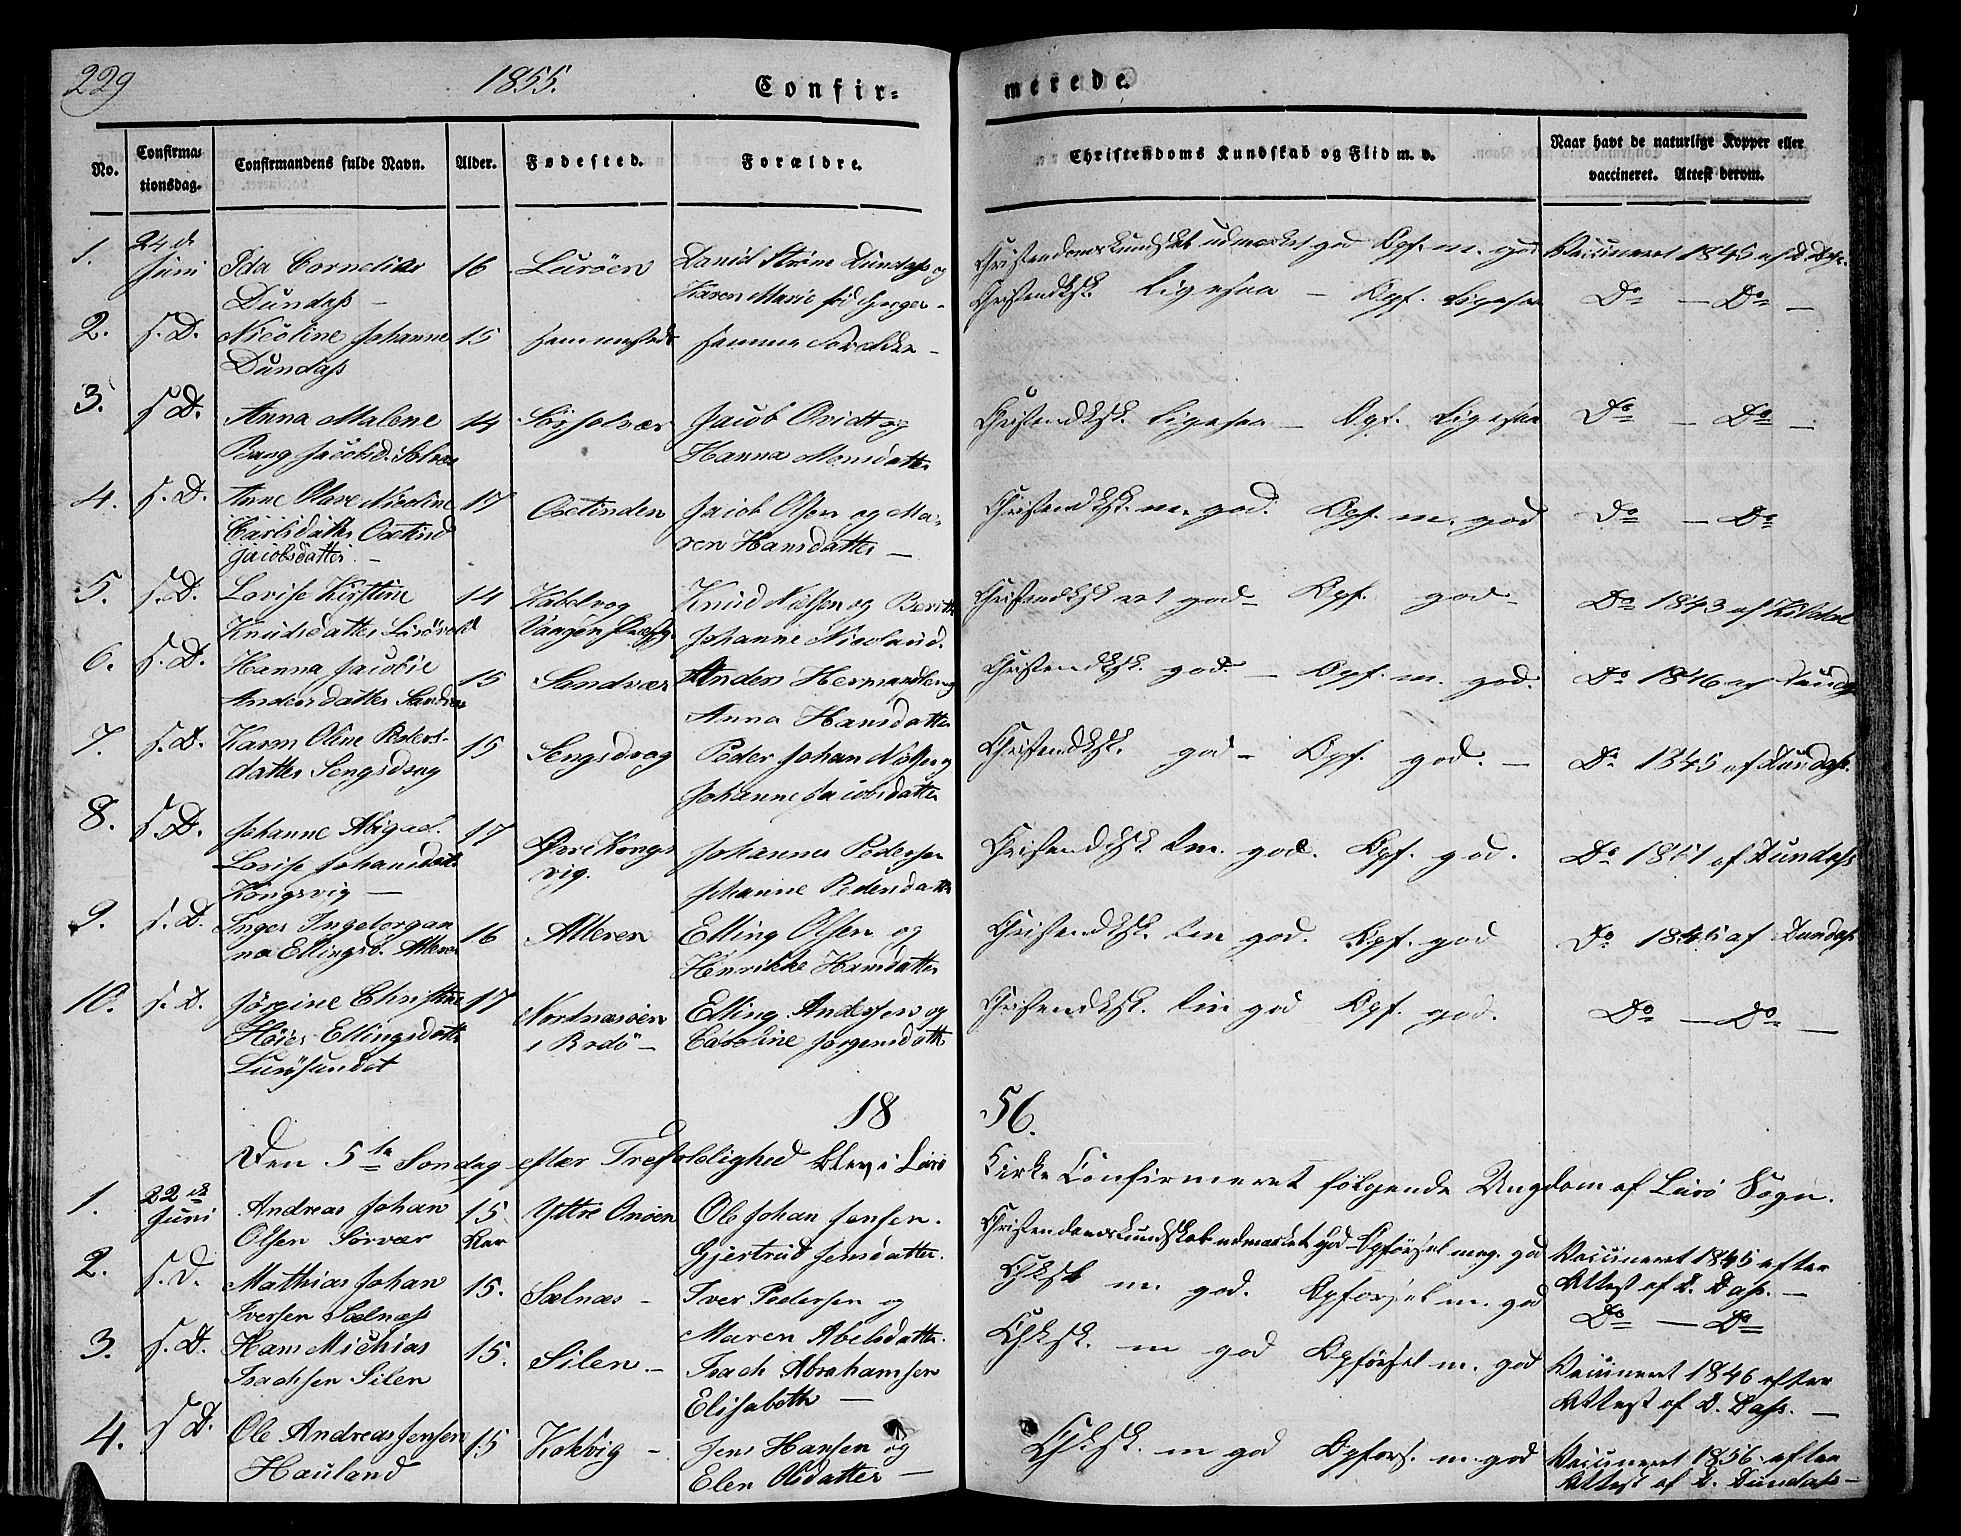 229
1855.
Confir-
merede.
No.
Confirma-
tionsdag.
Confirmandens fulde Navn.
Alder.
Fødested.
Forældre.
Christendoms Kundskab og Flid m. v.
Naar havt de naturlige Kopper eller
vaccineret. Attest derom.
1.
24 d.
Juni
Ida Cornelias
Dundass –
16
Luröen
David Ström Dundass og
Karen Marie
Christendomskundskab udmærket god Opf. m. god
Vaccineret 1845 af D. Dass.
2.
s. D.
Nicoline Johanne
Dundass
15
sammesteds
samme Forældre –
Christendksk. ligesaa – Opf. ligesaa
Do – Do –
3.
s. D.
Anna Malene
Bang Jacobsd. Selvær
14
Jacob Qvidt og
Hanna Monsdatter
Christendksk. ligesaa – Opf. ligesaa
Do – Do –
4.
s. D.
Anne Olave Nicoline
Carlsdatter Oxetind
Jacobsdatter. –
17
Oxetinden
Jacob Olsen og Ma-
ren Hansdatter –
Christendksk. m. god. Opf. m. god
Do – Do
5.
s. D.
Lovise Kirstine
Knudsdatter
14
Kabelvog
Vaagen
Knud Nielsen og Berith
Johanne Nicolaid.
Christendksk. god – Opf. god –
Do 1843 af
6.
s. D.
Hanna Jacobie
Andersdatter Sandvær
15
Sandvær
Anders Hermandsen og
Anna Hansdatter
Christendksk. god – Opf. m. god.
Do 1846 af Dundass
7.
s. D.
Karen Oline Peders-
datter Sengsdvog
15
Sengsdvog
Peder Johan Nielsen og
Johanne Jacobsdatter
Christendksk. god – Opf. god. –
Do 1845 af Dundass.
8.
s. D.
Johanne Abigael
Lovise Johansdatter
Kongsvig –
17
Øvre Kongs
vig.
Johannes Pedersen
Johanne Pedersdatter
Christendksk. tem. god. Opf. god.
Do 1851 af Dundass
9.
s. D.
Inger Ingeborgan
na Ellingsd. Alteren
16
Alteren
Elling Olsen og
Henrikke Hansdatter
Christendksk. tem god. Opf. god
Do 1845 af Dundass
10.
s. D.
Jörgine Christine
Höier Ellingsdatter
Luröesundet
17
Nordnæsöen
i Rödö –
Elling Andersen og
Caroline Jörgensdatter
Christendksk. tem god Opf. god.
Do – Do –
18
56.
Den 5te Söndag efter Trefoldighed blev i Lurö
Kirke Confirmeret følgende Ungdom af Lurö Sogn.
1.
22de
Juni
Andreas Johan
Olsen Sörvær
15
Aar
Yttre Onöen
Ole Johan Jensen.
Gjertrud Jensdatter.
Christendomskundskab udmærket god – Opförsel meg. god
Vaccineret 1845 efter
Attest af D. Dass. –
2.
s. D.
Mathias Johan
Iversen Sælnæss
15.
Sælnæs –
Iver Pedersen og
Maren Abelsdatter.
Chksk m. god. Opförsel m. god
Do – Do
3.
s. D.
Hans Michias
Isachsen Silen
15.
Silen –
Isach Abrahamsen
Elisabeth –
Chksk. m god Opförsel m. god
Vaccineret 1846 efter
Attest af D. Dass. –
4.
s. D.
Ole Andreas Jensen
Hauland
15
Kokvig –
Jens Hansen og
Elen Olsdatter –
Chksk. m god Opförs. m. god
Vaccineret 1856 efter
Attest af D. Dundass –